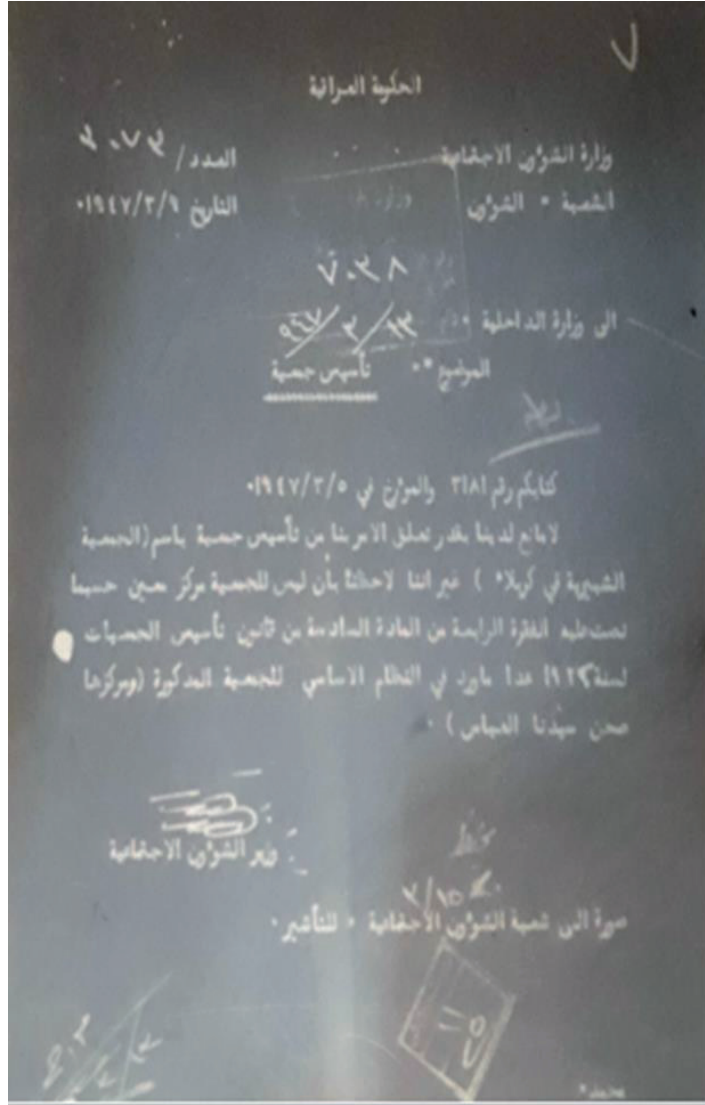 الحكومة العراقية
وزارة الشؤون الاجتماعية
العدد / ٣٠٧٣
الشعبة ٠ الشؤون
التاريخ ١٩٤٧/٣/٩٠
٨٣٠٧
الى وزارة الداخلية ٠
١٣/٣/٩٤٧
الموضوع ٠٠ تأسيس جمعية
كتابكم رقم ٣١٨١ والمؤرخ في ١٩٤٧/٣/٥٠
لامانع لدينا بقدر تعلق الامر بنا من تأسيس جمعية باسم (الجمعية
الشبيرية في كربلاء ) غير اننا لاحظنا بأن ليس للجمعية مركز معين حسبما
نصت عليه الفقرة الرابعة من المادة السادسة من قانون تأسيس الجمعيات
لسنة ١٩٢٢ عدا ماورد في النظام الاساسي للجمعية المذكورة (ومركزها
صحن سيدنا العباس ) ٠
وزير الشؤون الاجتماعية
٣/١٥
صورة الى شعبة الشؤون الاجتماعية ٠ للتأشير ٠